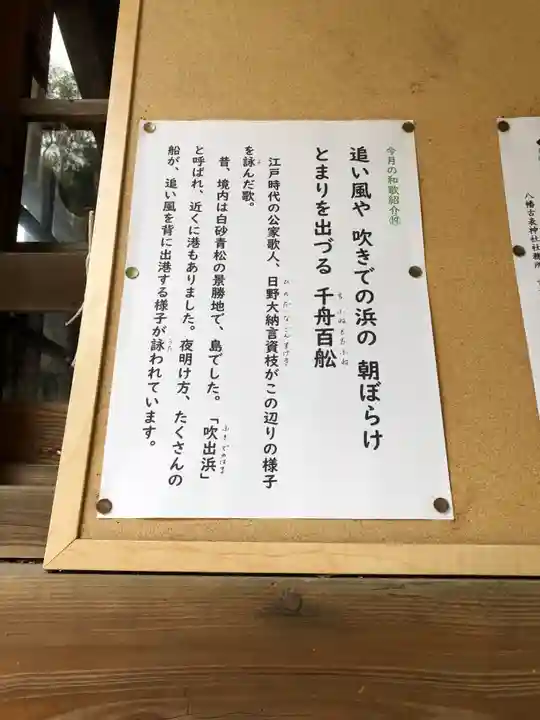 今月の和歌紹介⑲
追い風や 吹きでの浜の 朝ぼらけ
とまりを出づる 千舟百舩
ちふねももふね
江戸時代の公家歌人、日野大納言資枝がこの辺りの様子
ひのだいなごんすけき
を詠んだ歌。
よ
昔、境内は白砂青松の景勝地で、島でした。「吹出浜」
ふきでのはま
と呼ばれ、近くに港もありました。夜明け方、たくさんの
船が、追い風を背に出港する様子が詠われています。
うた
八幡古表神社社務所